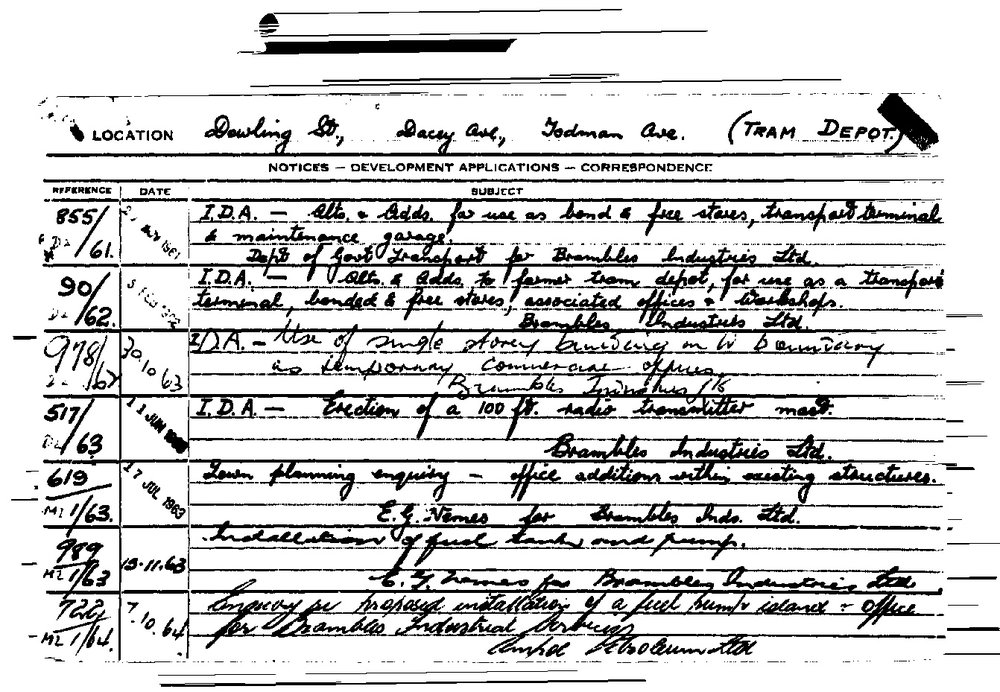 LOCATION Dowling St., Dacey Ave., Todman Ave. (TRAM DEPOT.)
NOTICES — DEVELOPMENT APPLICATIONS — CORRESPONDENCE
REFERENCE DATE SUBJECT
855/ I.D.A. — Alts. & Adds. for use as bond & free stores, transport terminal
& maintenance garage.
61. Dept of Govt Transport for Brambles Industries Ltd.
90/ I.D.A. — Alts. & Adds. to former tram depot, for use as a transport
terminal, bonded & free stores, associated offices & workshops.
62. Brambles Industries Ltd.
978/ 30.10.63 I.D.A. — Use of single storey building on W boundary
as temporary commercial offices
Brambles Industries
517/ 11 JUN I.D.A. — Erection of a 100 ft. radio transmitter mast.
63. Brambles Industries Ltd.
619 17 JUL 1963 Town planning enquiry — office additions within existing structures.
M2 1/63. E.G. Nemes for Brambles Inds. Ltd.
989 13.11.63 Installation of fuel tank and pump.
M2 1/63 E.G. Nemes for Brambles Industries Ltd
7.10.64 Enquiry re proposed installation of a fuel pump island & office
M2 1/64. for Brambles Industrial Services
Ampol Petroleum Ltd